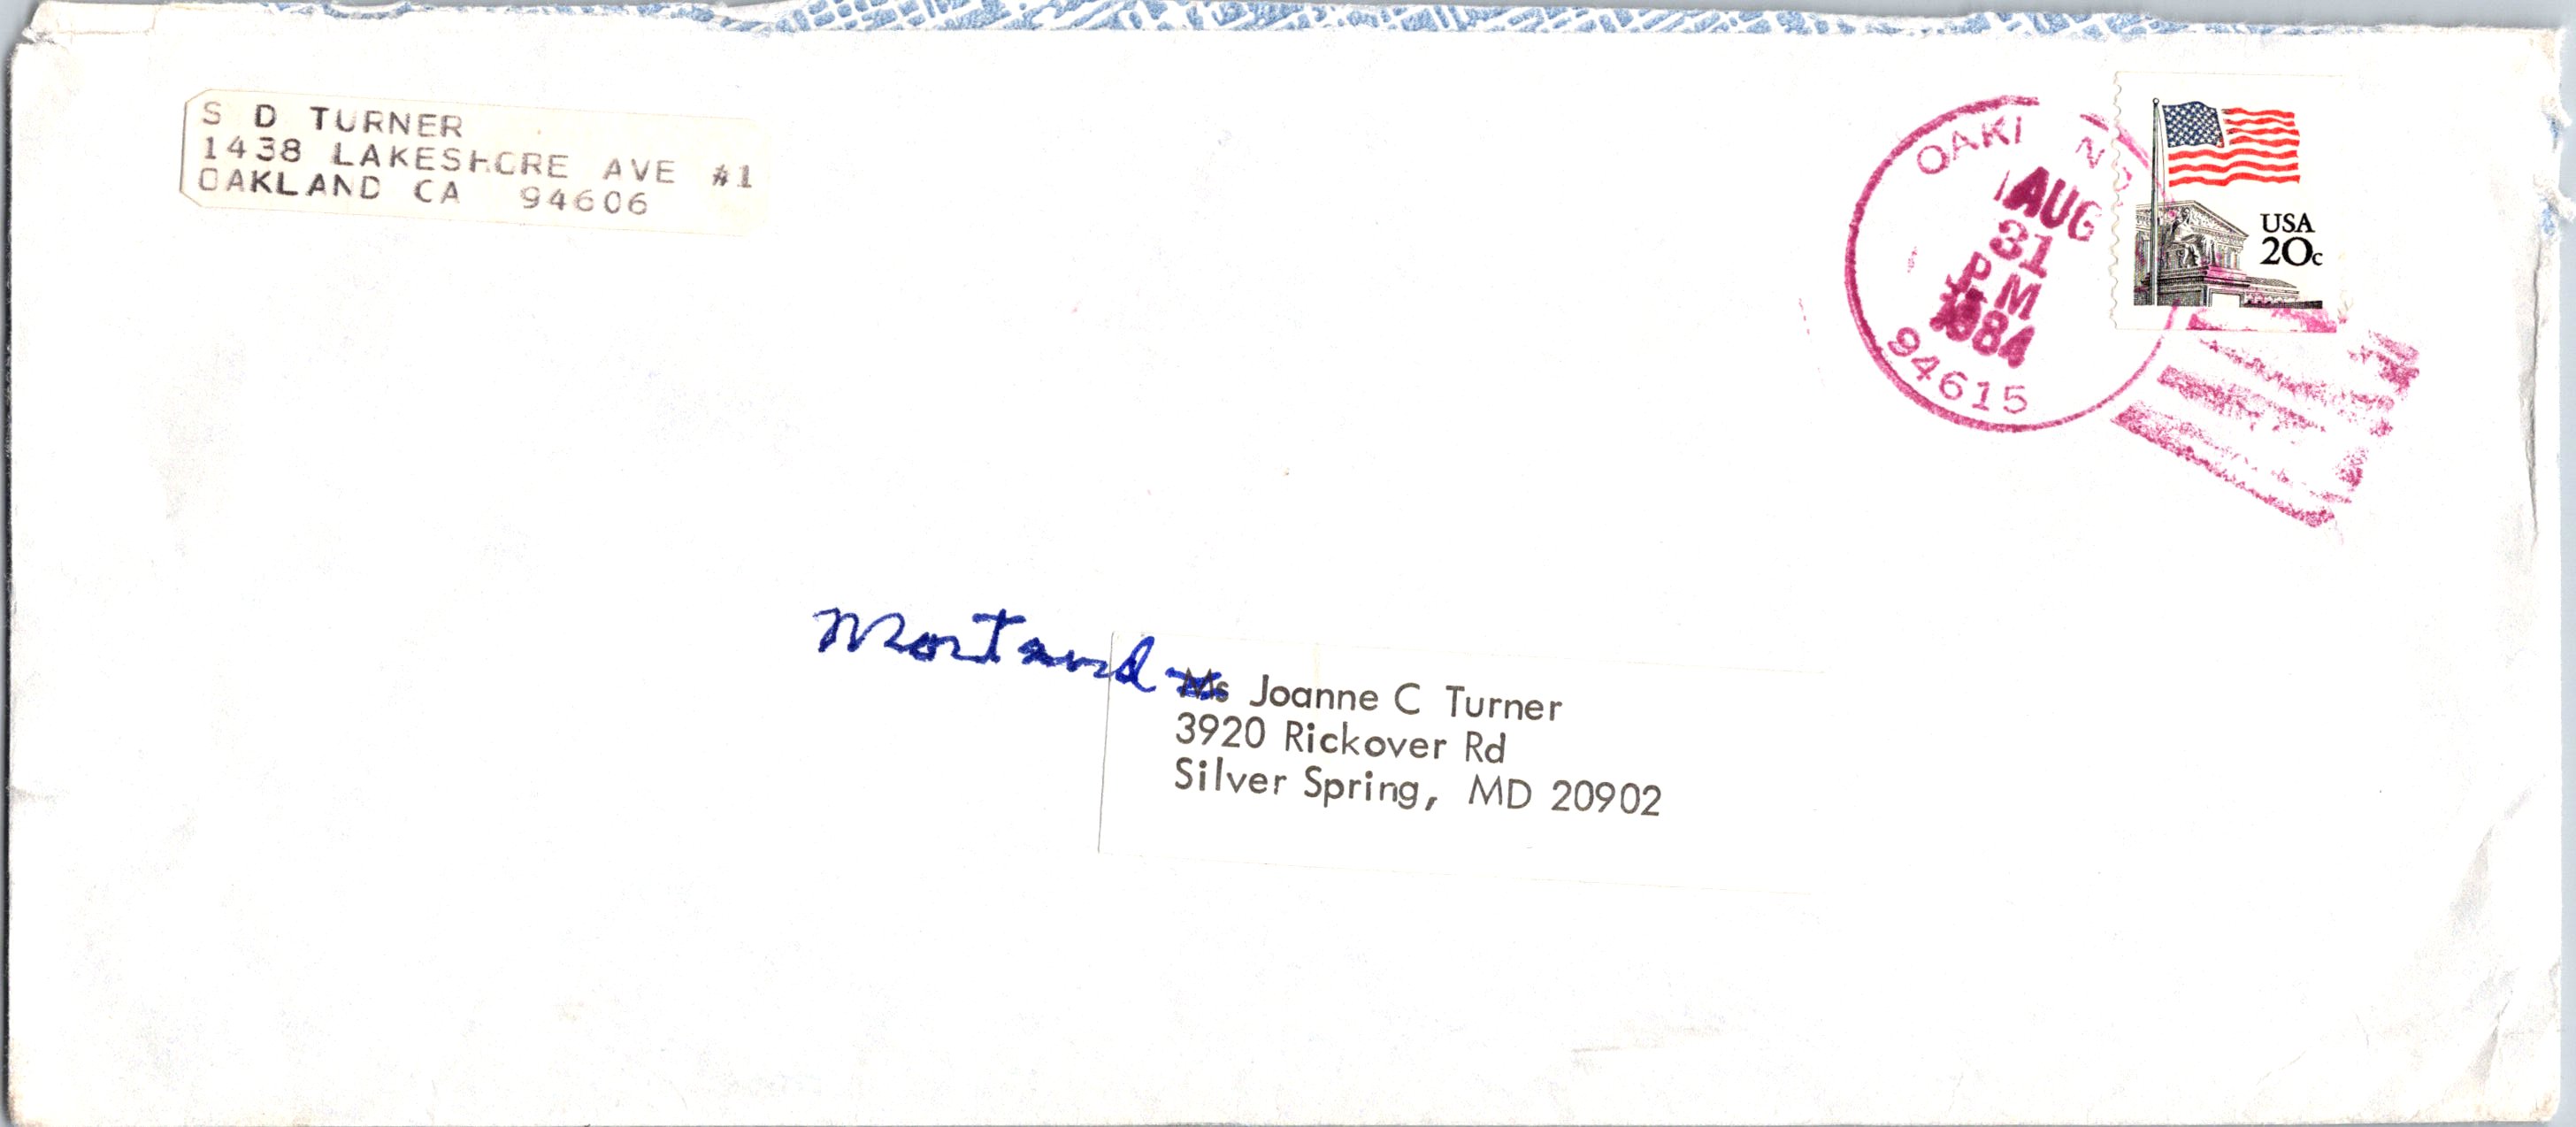 S D TURNER
1438 LAKESHORE AVE #1
OAKLAND CA 94606
AUG
31
PM
1984
94615
USA
20c
Mort and
Ms Joanne C Turner
3920 Rickover Rd
Silver Spring, MD 20902